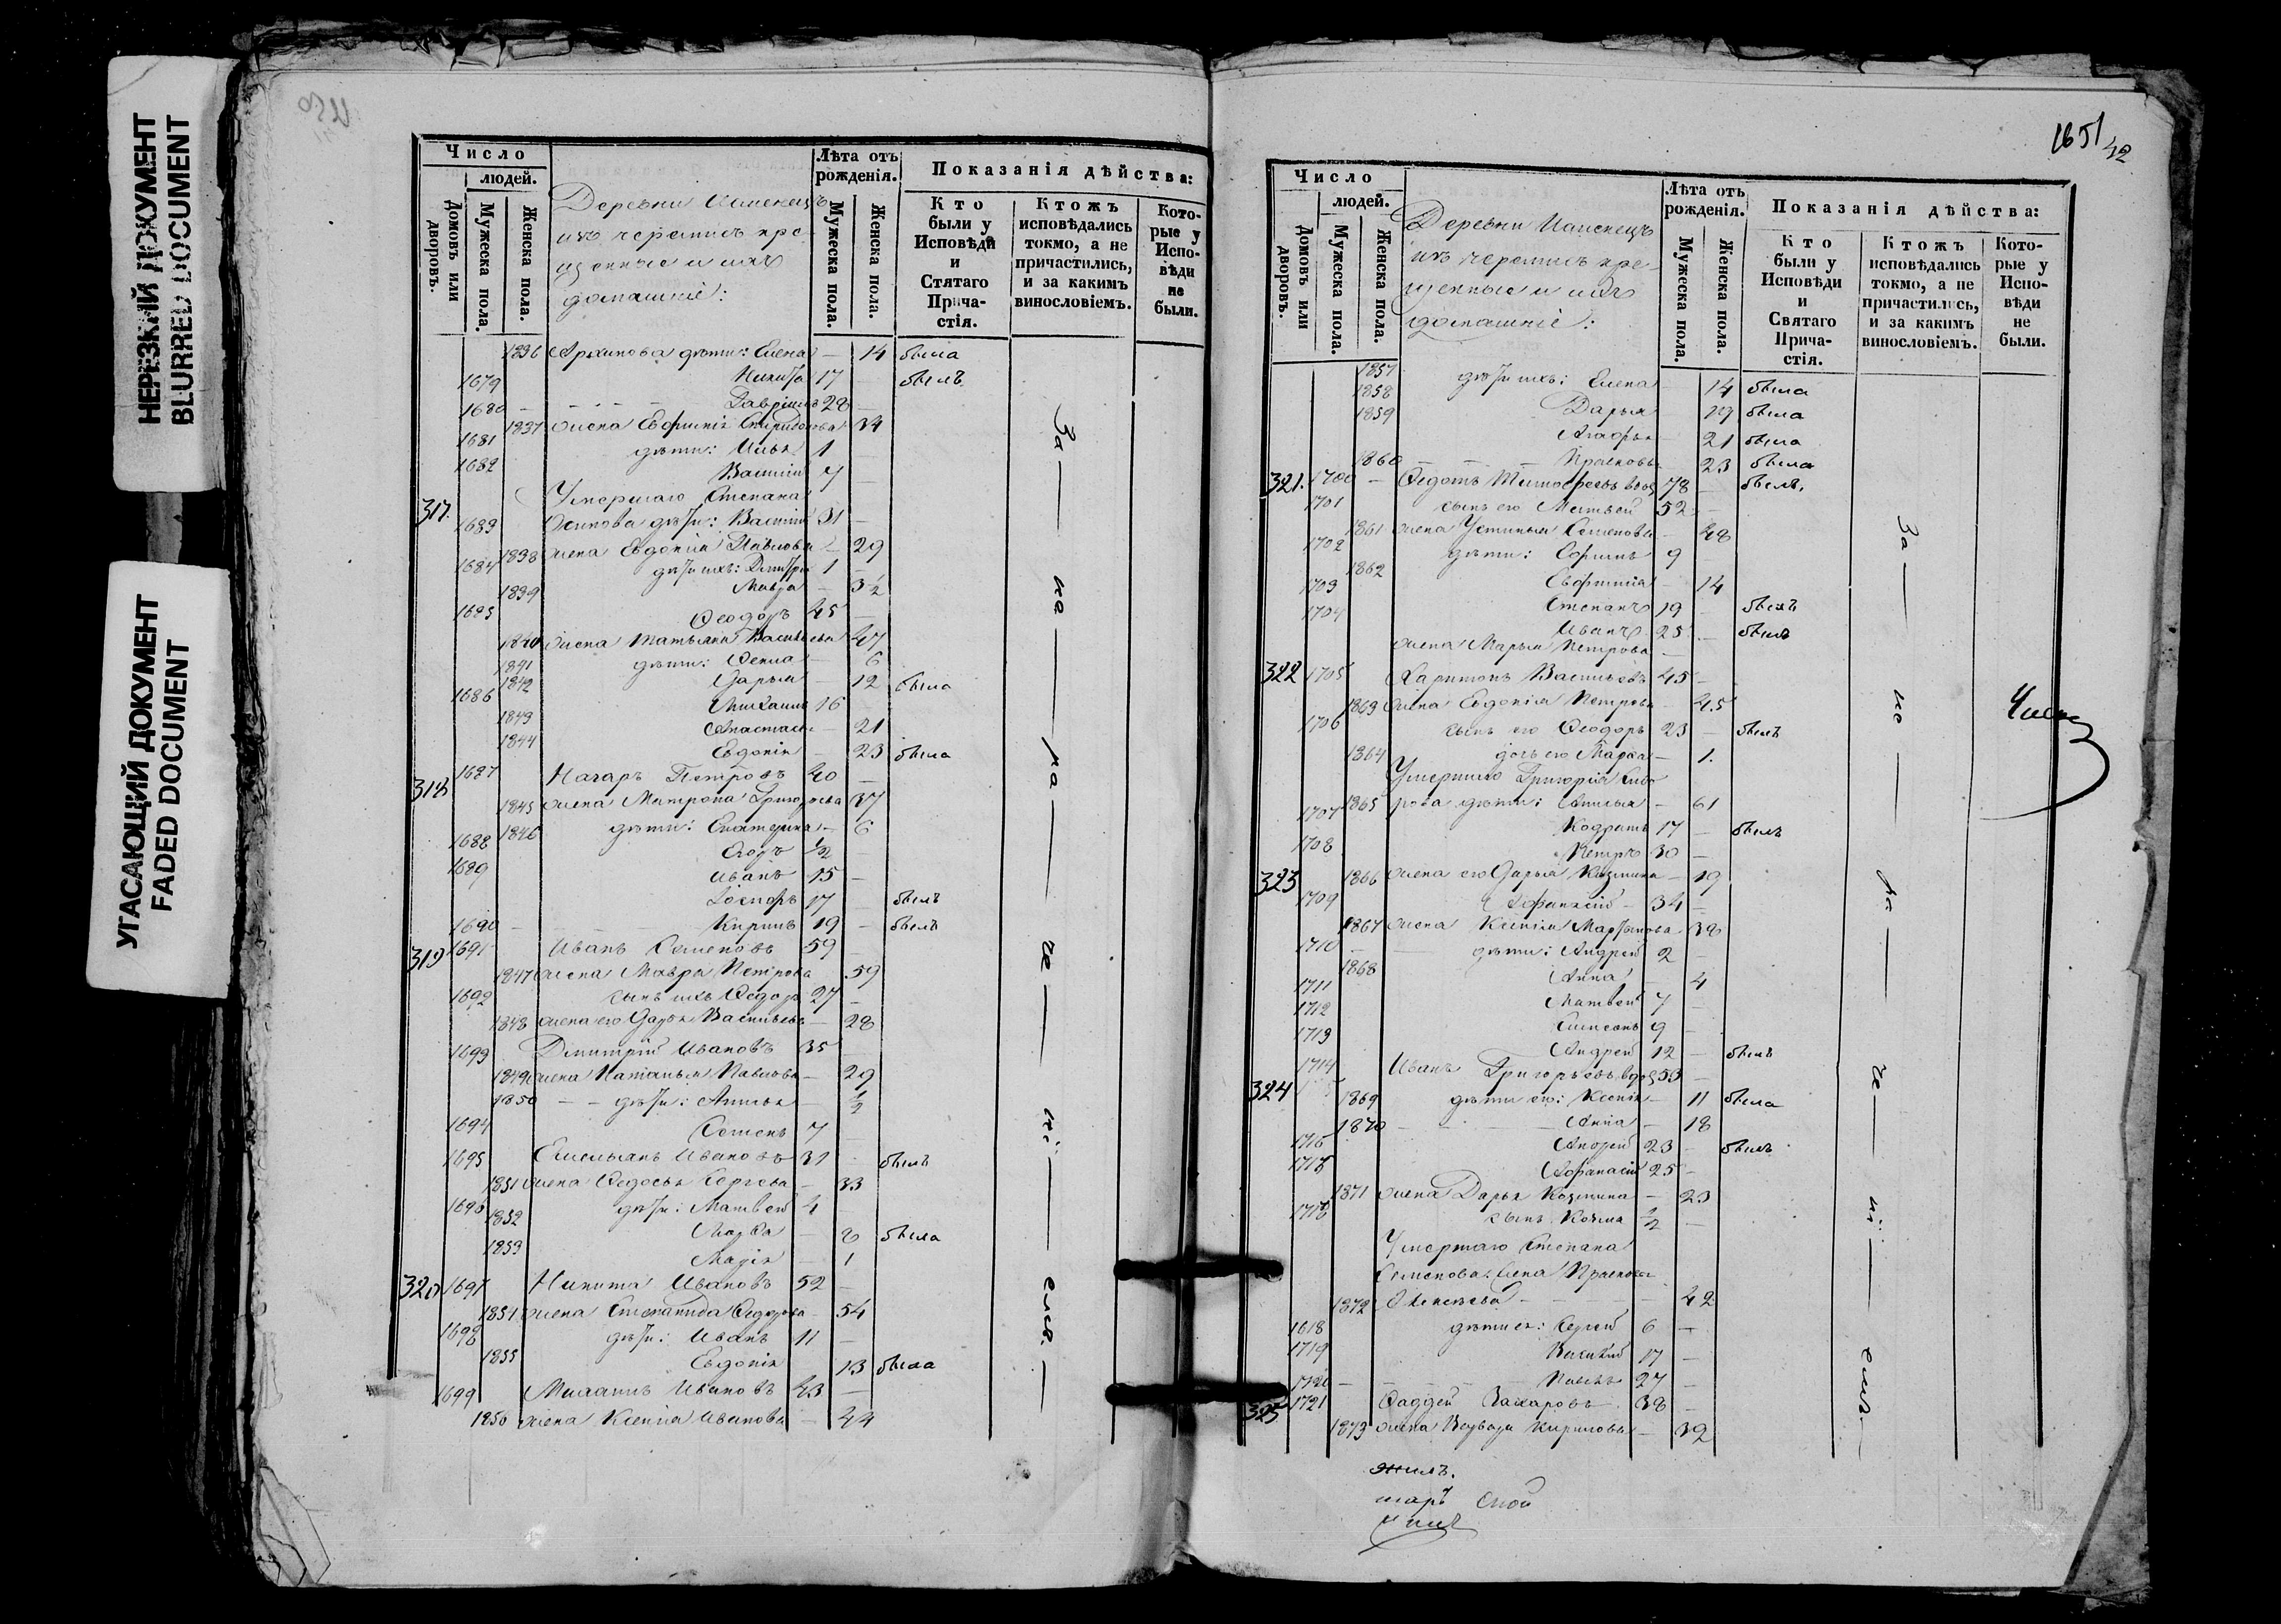 НЕРЕЗКИЙ ДОКУМЕНТ
BLURRED DOCUMENT
УГАСАЮЩИЙ ДОКУМЕНТ
FADED DOCUMENT
Число
людей.
Домовъ или дворовъ.
Мужеска пола.
Женска пола.
Деревни
изъ черемисъ кре-
щенные и ихъ
домашніе:
Лѣта отъ рожденія.
Мужеска пола.
Женска пола.
Показанія дѣйства:
Кто были у Исповѣди и Стятаго Прича- стія.
Ктожъ исповѣдались токмо, а не причастились, и за какимъ винословіемъ.
Кото- рые у Испо- вѣди не были.
1836 Архипова дѣти: Елена — 14 была
1679 Никита 17 — былъ
1680 Гавріилъ 28 —
1837 жена Евфимія Спиридонова 34
1681 дѣти: Илья 1 —
1682 Василій 7 —
317. Умершаго Степана
1683 Осипова дѣти: Василій 31 —
1838 жена Евдокія Павлова — 29
1684 дѣти ихъ: Дмитрій 1 —
1839 Мавра — 3½
1685 Ѳеодоръ 45 —
1840 жена Татьяна Васильева 47
1841 дѣти: Ѳекла — 6
1842 Дарья — 12 была
1686 Михаилъ 16
1843 Анастасія — 21
1844 Евдокія — 23 была
318 1687 Назаръ Петровъ 40 —
1845 жена Матрона Григорьева 37
1846 дѣти: Екатерина — 6
1688 Егоръ ½
1689 Иванъ 15 —
Іосифъ 17 — былъ
1690 Кирилъ 19 — былъ
319 1691 Иванъ Семеновъ 59
1847 жена Мавра Петрова 59
1692 сынъ ихъ Ѳедоръ 27 —
1848 жена его Дарья Васильева — 28
1693 Дмитрій Ивановъ 35
1849 жена Наталья Павлова — 29
1850 дѣти: Анисья — ½
1694 Семенъ 7
1695 Емельянъ Ивановъ 31 былъ
1851 жена Ѳедосья Сергеева — 33
1696 дѣти: Матвей 4
1852 Марѳа — 8 была
1853 Марія — 1
320 1697 Никита Ивановъ 52 —
1854 жена Степанида Ѳедорова 54
1698 дѣти: Иванъ 11 —
1855 Евдокія — 13 была
1699 Михаилъ Ивановъ 43 —
1856 жена Ксенія Иванова — 44
За — не — ра — че — ні — емъ. —
1651
42
Число
людей.
Домовъ или дворовъ.
Мужеска пола.
Женска пола.
Деревни
изъ черемисъ кре-
щенные и ихъ
домашніе:
Лѣта отъ рожденія.
Мужеска пола.
Женска пола.
Показанія дѣйства:
Кто были у Исповѣди и Святаго Прича- стія.
Ктожъ исповѣдались токмо, а не причастились, и за какимъ винословіемъ.
Кото- рые у Испо- вѣди не были.
1857 дѣти ихъ: Елена — 14 была
1858 Дарья — 19 была
1859 Агафья — 21 была
1860 Прасковья 23 была
321. 1700 Ѳедотъ Тимофеевъ вдов 78 — былъ.
1701 сынъ его Матвей 52 —
1861 жена Устинья Семенова — 48
1702 дѣти: Ефимъ 9
1862 Евфимія — 14
1703 Степанъ 19 — былъ
1704 Иванъ 25 — былъ
жена Марья Петрова —
322 1705 Харитонъ Васильевъ 45 —
1863 жена Евдокія Петрова — 45
1706 сынъ его Ѳеодоръ 23 — былъ
1864 дочь его Марѳа — 1.
Умершаго Григорія Сидо
1865 рова дѣти: Анисья — 61
1707 Кодратъ 17 — былъ
1708 Петръ 30 —
323 1866 жена его Дарья Козмина — 19
1709 Афанасій — 34 —
1867 жена Ксенія Мартынова 38
1710 дѣти: Андрей 2 —
1868 Анна — 4
1711 Матвей 7 —
1712 Симеонъ 9 —
1713 Андрей 12 — былъ
1714 Иванъ Григорьевъ вдов 53 —
324 1869 дѣти его: Ксенія — 11 была
1870 Анна — 18
1716 Андрей 23 — былъ
1717 Афанасій 25 —
1871 жена Дарья Козмина — 23
1718 сынъ Козма ½ —
Умершаго Степана
Семенова жена Прасковья
1872 Алексѣева — 42
1618 дѣти ея: Сергей 6 —
1719 Василій 17 —
1720 Павелъ 27 —
325 1721 Ѳаддей Захаровъ 38 —
1873 жена Варвара Кирилова — 39
За — не — ра — че — ні — емъ —